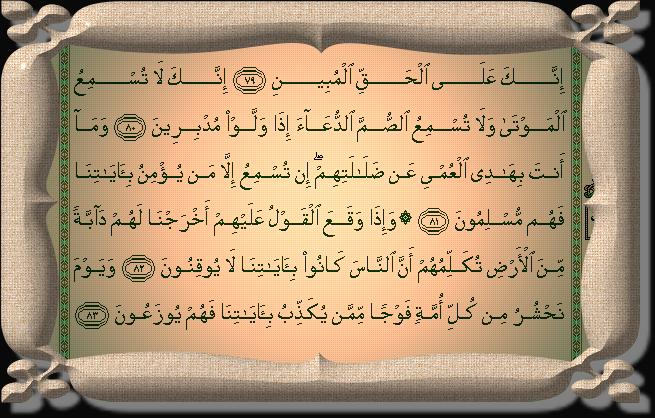 إِنَّكَ عَلَى ٱلْحَقِّ ٱلْمُبِينِ ٧٩ إِنَّكَ لَا تُسْمِعُ
ٱلْمَوْتَىٰ وَلَا تُسْمِعُ ٱلصُّمَّ ٱلدُّعَآءَ إِذَا وَلَّوْا۟ مُدْبِرِينَ ٨٠ وَمَآ
أَنتَ بِهَٰدِى ٱلْعُمْىِ عَن ضَلَٰلَتِهِمْ ۖ إِن تُسْمِعُ إِلَّا مَن يُؤْمِنُ بِـَٔايَٰتِنَا
فَهُم مُّسْلِمُونَ ٨١ ۞ وَإِذَا وَقَعَ ٱلْقَوْلُ عَلَيْهِمْ أَخْرَجْنَا لَهُمْ دَآبَّةً
مِّنَ ٱلْأَرْضِ تُكَلِّمُهُمْ أَنَّ ٱلنَّاسَ كَانُوا۟ بِـَٔايَٰتِنَا لَا يُوقِنُونَ ٨٢ وَيَوْمَ
نَحْشُرُ مِن كُلِّ أُمَّةٍ فَوْجًا مِّمَّن يُكَذِّبُ بِـَٔايَٰتِنَا فَهُمْ يُوزَعُونَ ٨٣